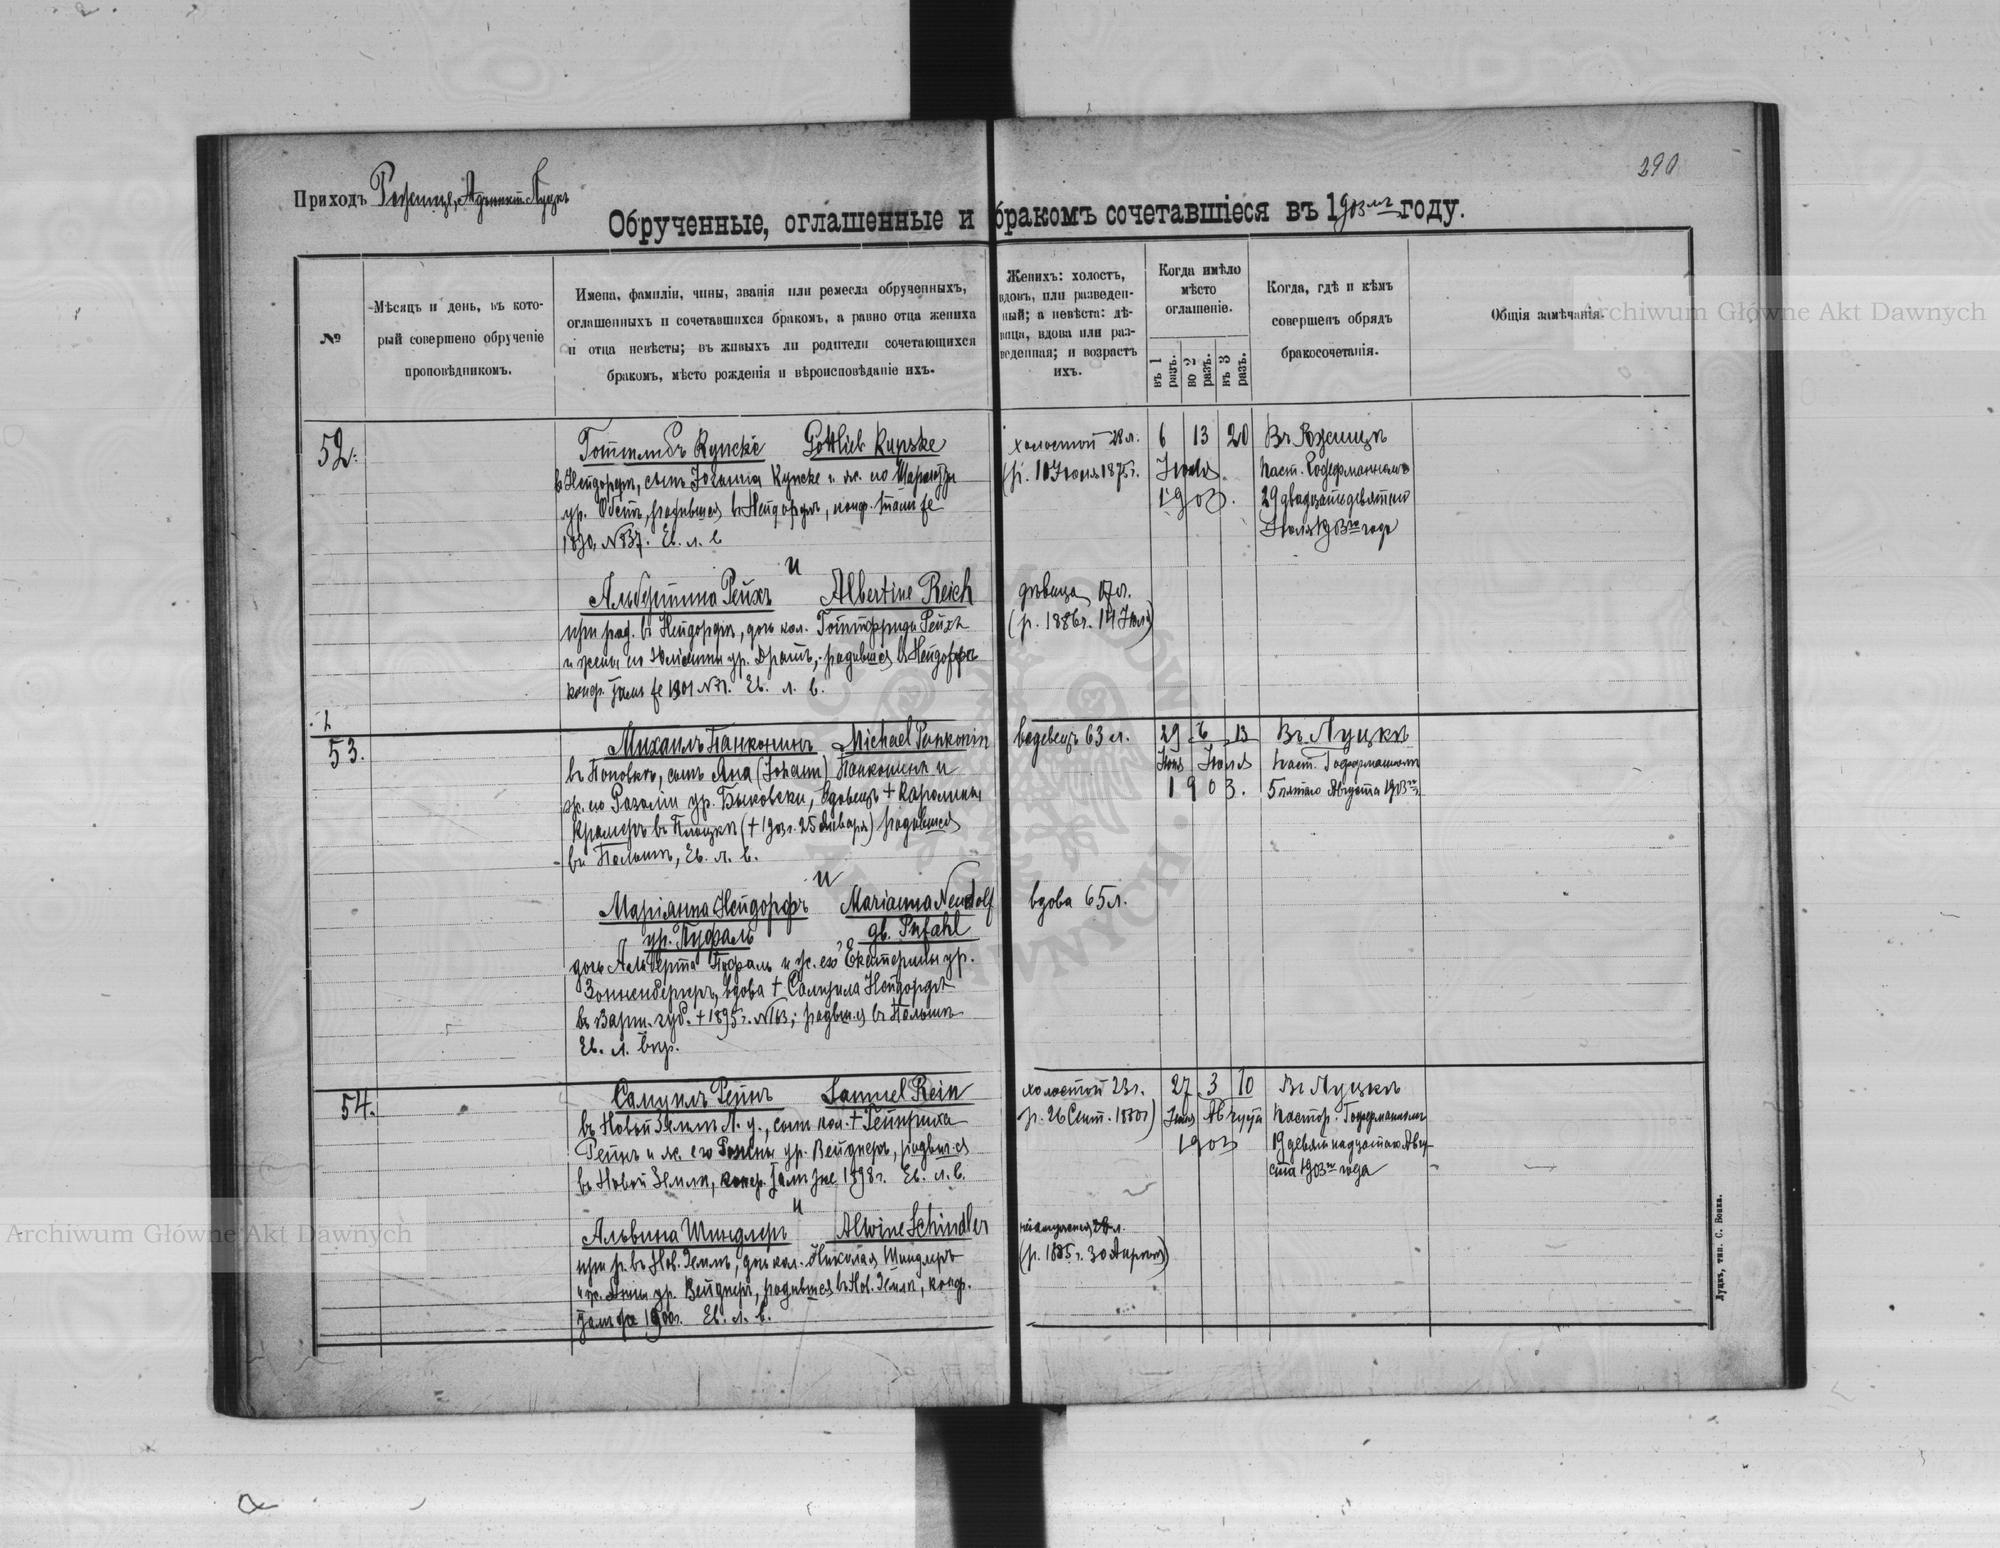 290
Приходъ Рожище, Адъюнктъ Луцкъ
Обрученные, оглашенные и бракомъ сочетавшіеся въ 1903мъ году.
№
Мѣсяцъ и день, въ кото-
рый совершено обрученіе
проповѣдникомъ.
Имена, фамиліи, чины, званія или ремесла обрученныхъ,
оглашенныхъ и сочетавшихся бракомъ, а равно отца жениха
и отца невѣсты; въ живыхъ ли родители сочетающихся
бракомъ, мѣсто рожденія и вѣроисповѣданіе ихъ.
Женихъ: холостъ,
вдовъ, или разведен-
ный; а невѣста: дѣ-
вица, вдова или раз-
веденная; и возрастъ
ихъ.
Когда имѣло
мѣсто
оглашеніе.
въ 1
разъ.
во 2
разъ.
въ 3
разъ.
Когда, гдѣ и кѣмъ
совершенъ обрядъ
бракосочетанія.
Общія замѣчанія.
52.
Готтлибъ Купске Gottlieb Kupske
въ Нейдорфѣ, сынъ Іоганна Купске и ж. по
ур. родившійся въ Нейдорфѣ, конф.
№ 37. Ев. л. в
и
Альбертина Рейхъ Albertine Reich
при род. въ Нейдорфѣ, дочь кол. Готтфрида Рейха
и жены ур. родившаяся въ Нейдорфѣ
конф. 1901 Ев. л. в.
холостой 28 л.
(р. 10 Іюня 1875 г.
дѣвица 17 л.
(р. 1886 г. 14 Іюля)
6 13 20
Іюля
1903.
Въ Рожищѣ
паст.
29 двадцать девятаго
Іюля 1903го года
53.
Михаилъ Панконинъ Michael Pankonin
въ Поповкѣ, сынъ Яна (Johann) Панконина и
ж. по Розаліи ур. Быковски, вдовецъ + Каролины
Крамеръ въ (+ 1903 г. 25 Января) родившійся
въ Польшѣ, Ев. л. в.
и
Маріанна Нейдорфъ Marianna Neudolf
ур. Пуфаль gb. Pufahl
дочь Альберта Пуфаль и ж. его Екатерины ур.
Зонненбергеръ, вдова + Самуила Нейдорфъ
въ Варш. губ. + 1895 г. № 163; родивш.ся въ Польшѣ
Ев. л. вѣр.
вдовецъ 63 л.
вдова 65 л.
29 6 13
Іюня Іюля
1903.
Въ Луцкѣ
паст.
5 пятаго Августа 1903го
54.
Самуилъ Рейнъ Samuel Rein
въ Новой Землѣ Л. у., сынъ кол. + Гейнриха
Рейнъ и ж. его Розины ур. Вейднеръ, родивш.ся
въ Новой Землѣ, конф. 1898 г. Ев. л. в.
и
Альвина Шиндлеръ Alwine Schindler
при р. въ Нов. Землѣ, дочь кол. Николая Шиндлеръ
и ж. Анны ур. Вейднеръ, родившаяся въ Нов. Землѣ, конф.
1900 г. Ев. л. в.
холостой 23 г.
р. 26 Сент. 1880 г)
(р. 1885 г. 30 Апрѣля)
27 3 10
Іюля Августа
1903
Въ Луцкѣ
Пастор.
19 девятнадцатаго Авгу-
ста 1903го года
Луцкъ, тип. С. Бонка.
Archiwum Główne Akt Dawnych
Archiwum Główne Akt Dawnych